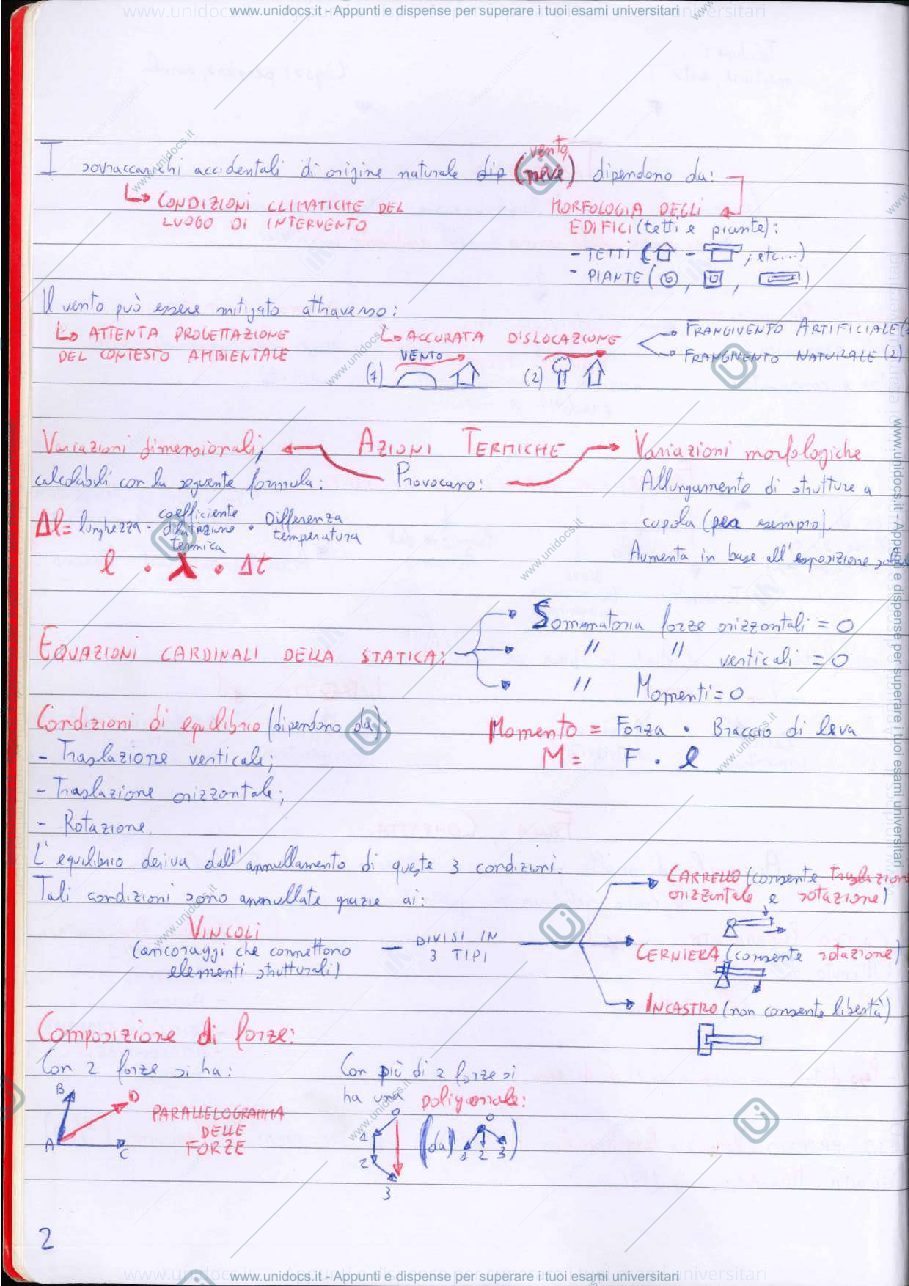 www.unidocs.it - Appunti e dispense per superare i tuoi esami universitari
vento
I sovraccarichi accidentali di origine naturale dip (neve) dipendono da:
CONDIZIONI CLIMATICHE DEL
LUOGO DI INTERVENTO
MORFOLOGIA DEGLI
EDIFICI (tetti e piante):
- TETTI ( - , etc...)
- PIANTE ( , , )
Il vento può essere mitigato attraverso:
ATTENTA PROGETTAZIONE
DEL CONTESTO AMBIENTALE
ACCURATA DISLOCAZIONE
FRANGIVENTO ARTIFICIALE
FRANGIVENTO NATURALE (2)
VENTO
(1) (2)
Variazioni dimensionali; AZIONI TERMICHE Variazioni morfologiche
calcolabili con la seguente formula: Provocano: Allungamento di strutture a
cupola (per esempio).
Aumenta in base all'esposizione
Δl = lunghezza · coefficiente dilatazione termica · Differenza temperatura
l · λ · Δt
EQUAZIONI CARDINALI DELLA STATICA:
Sommatoria forze orizzontali = 0
" " verticali = 0
" Momenti = 0
Condizioni di equilibrio (dipendono da):
- Traslazione verticale;
- Traslazione orizzontale;
- Rotazione.
Momento = Forza · Braccio di leva
M = F · l
L'equilibrio deriva dall'annullamento di queste 3 condizioni.
Tali condizioni sono annullate grazie ai:
VINCOLI
(ancoraggi che connettono
elementi strutturali)
DIVISI IN
3 TIPI
CARRELLO (consente traslazione
orizzontale e rotazione)
CERNIERA (consente rotazione)
INCASTRO (non consente libertà)
Composizione di forze:
Con 2 forze si ha:
B D
A C
PARALLELOGRAMMA
DELLE
FORZE
Con più di 2 forze si
ha una poligonale:
0
1
2
3
(da) 0
1 2 3
2
www.unidocs.it - Appunti e dispense per superare i tuoi esami universitari